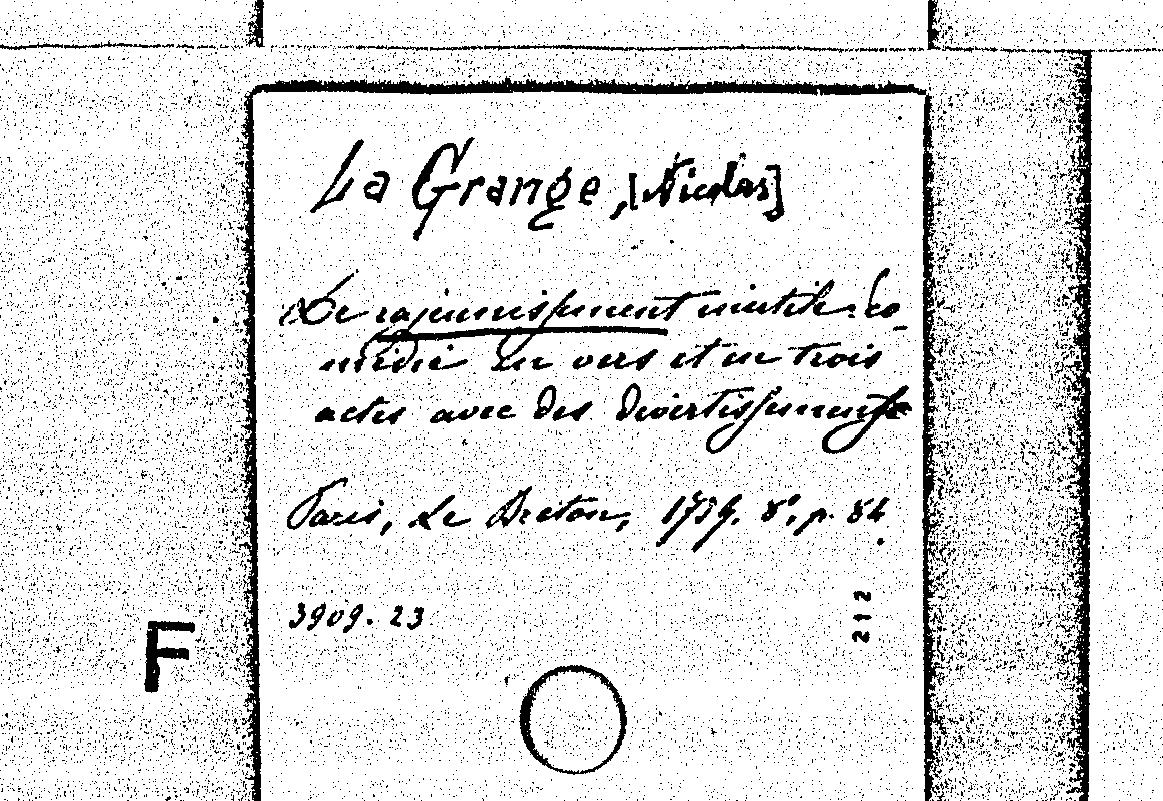 La Grange, [Nicolas]
Le rajeunissement inutile. Co-
médie en vers et en trois
actes avec des divertissements
Paris, Le Breton, 1739. 8°, p. 84.
3909. 23
212
F